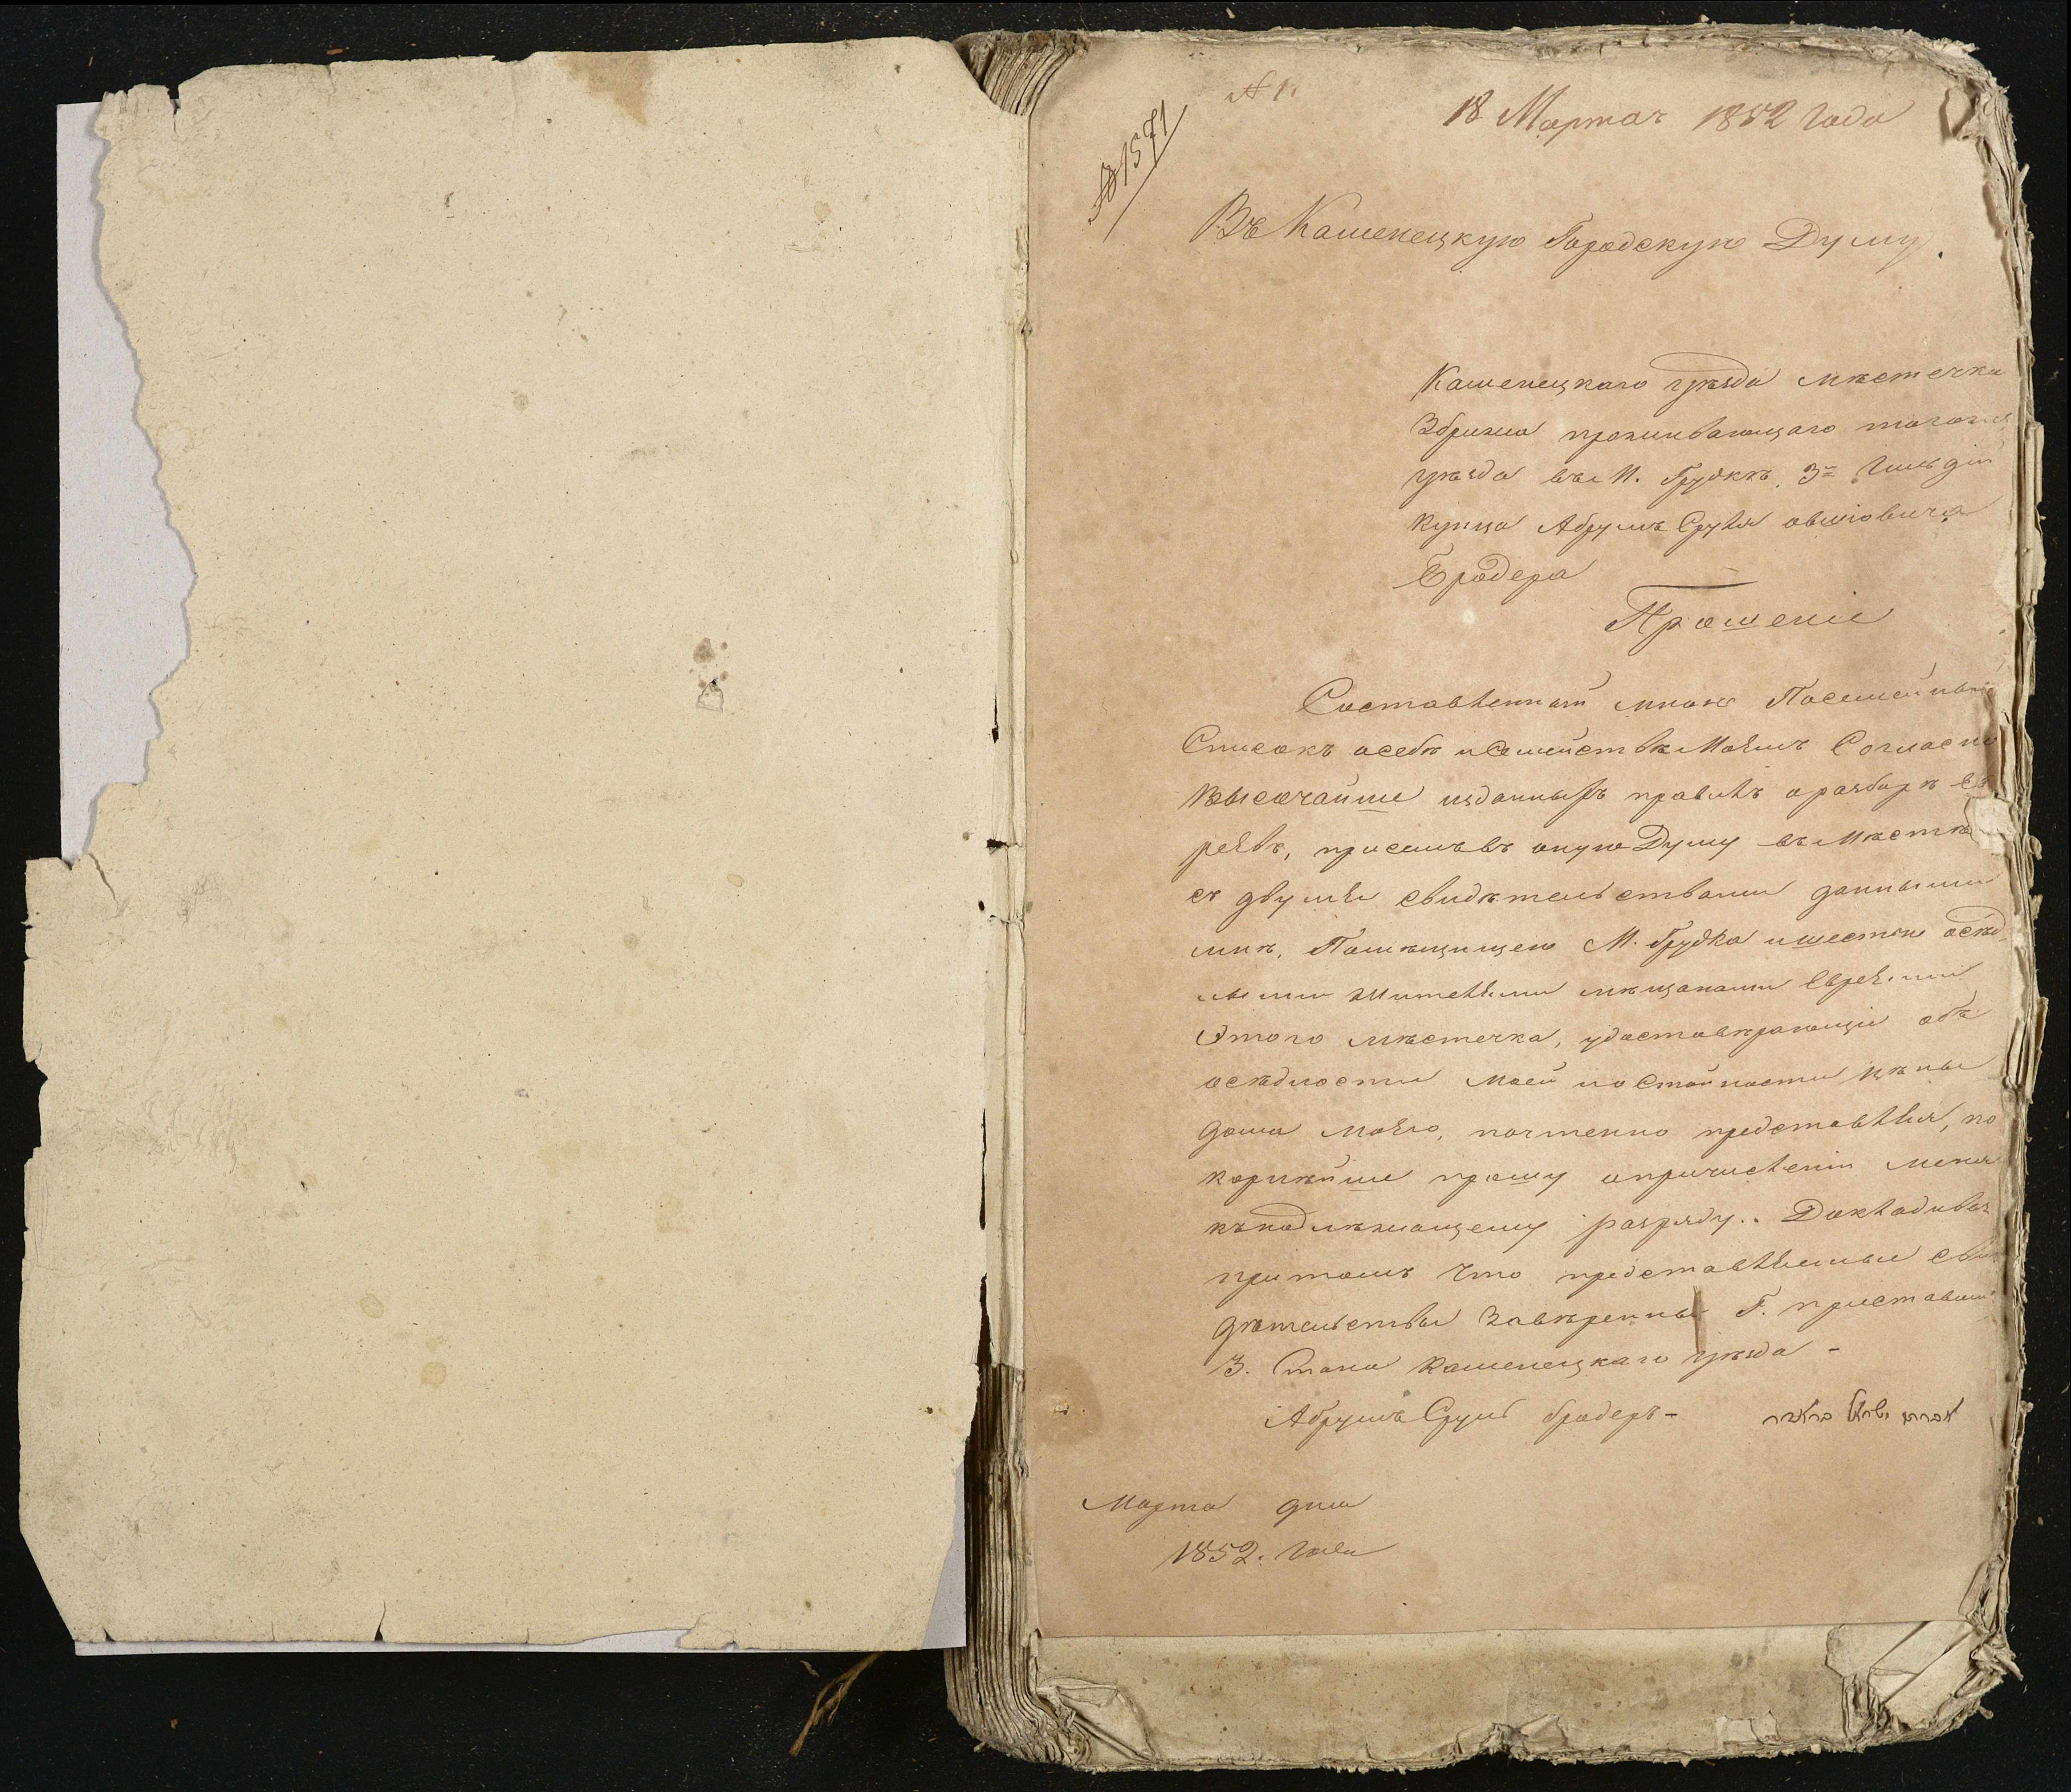 № 1571
18 Марта 1852 года
Въ Каменецкую Городскую Думу.
Каменецкаго уѣзда мѣстечка
проживающаго тогожъ
уѣзда въ М. Грудкѣ, 3й Гильдіи
купца Абрумъ Сруля
Бродера
Прошеніе
Составленный мною Посемейный
Списокъ о себѣ и Семействѣ Моемъ Согласно
Высочайше изданныхъ правилъ о разборѣ ев
реевъ, въ оную Думу въ Мѣстѣ
съ двумя свидѣтельствами данными
мнѣ, Помѣщицею М. Грудка и шестью осѣд
лыми жителями мѣщанами Евреями
Этого мѣстечка, удостовѣряющіе объ
осѣдлости моей и о стойности цѣны
дома моего, почтенно представляя, по
корнѣйше прошу о причисленіи меня
къ надлѣжащему разряду.. Докладывая
притомъ что представляемые сви
дѣтельствы завѣренны Г. приставомъ
3. Стана Каменецкаго уѣзда -
Абрумъ Сруль бродеръ - אברהם ישראל בראדר
Марта дня
1852. Года